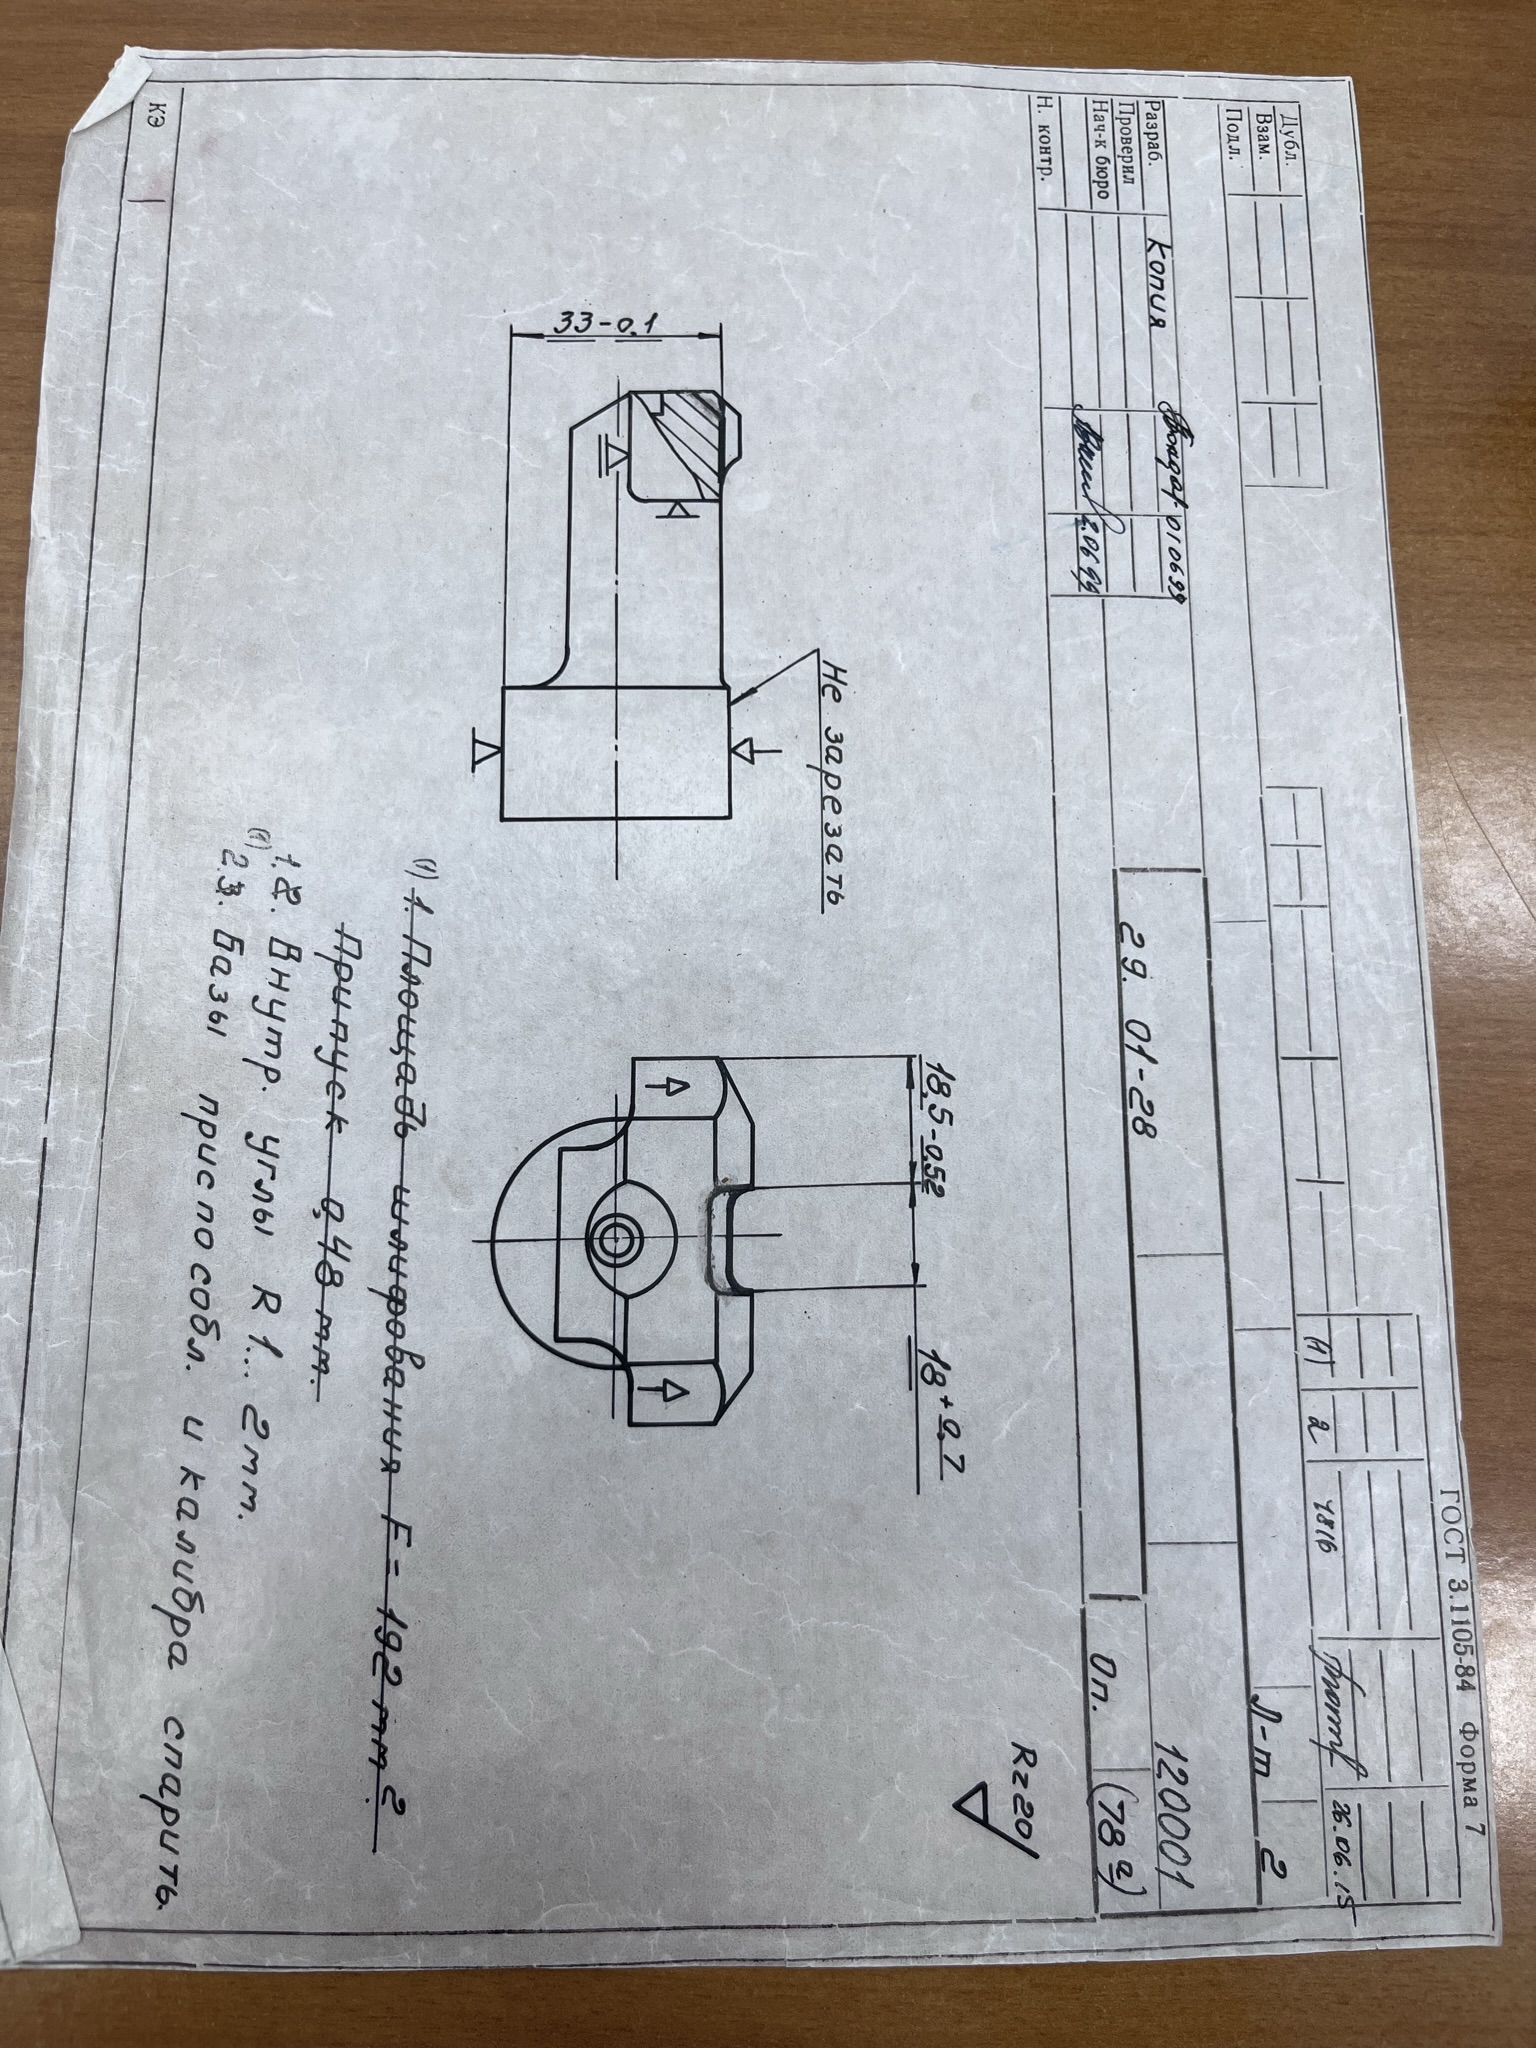 ГОСТ 3.1105-84 Форма 7
(1) 2 1816 26.06.15
Дубл.
Взам.
Подл.
Л-т 2
Разраб. Копия 010699
Проверил
Нач-к бюро 2.0699
Н. контр.
29. 01-28
120001
Оп. (78а)
Rz20
18,5-0,52
18+0,7
Не зарезать
33-0,1
(1) 1. Площадь шлифования F = 192 мм2.
Припуск 0,48 мм.
1.2. Внутр. углы R 1... 2мм.
(1) 2.3. Базы приспособл. и калибра спарить.
КЭ